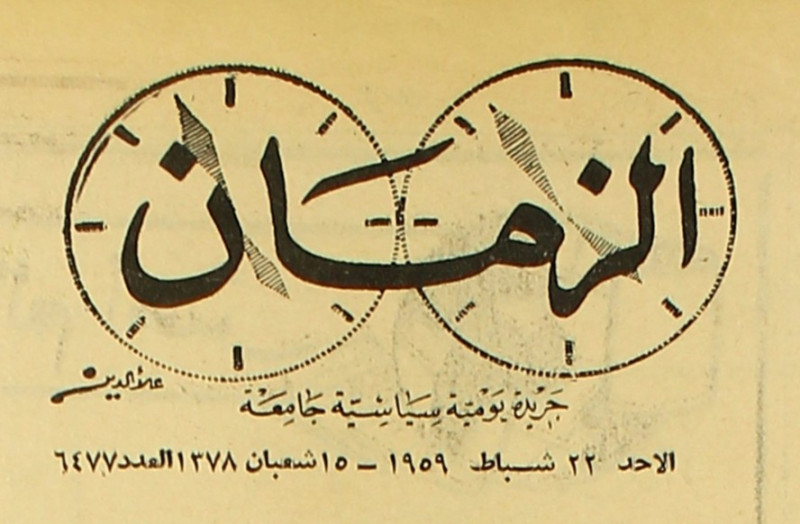 الزمان
علاء الدين
جريدة يومية سياسية جامعة
الاحد ٢٢ شباط ١٩٥٩ – ١٥ شعبان ١٣٧٨ العدد ٦٤٧٧